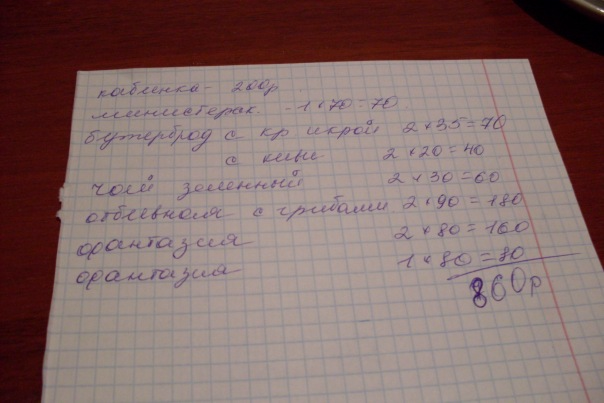 кабинка - 200р.
министерск. - 1 × 70 = 70.
бутерброд с кр икрой 2 × 35 = 70
с киви 2 × 20 = 40
чай зеленный 2 × 30 = 60
отбивная с грибами 2 × 90 = 180
франтазия 2 × 80 = 160
франтазия 1 × 80 = 80
860р